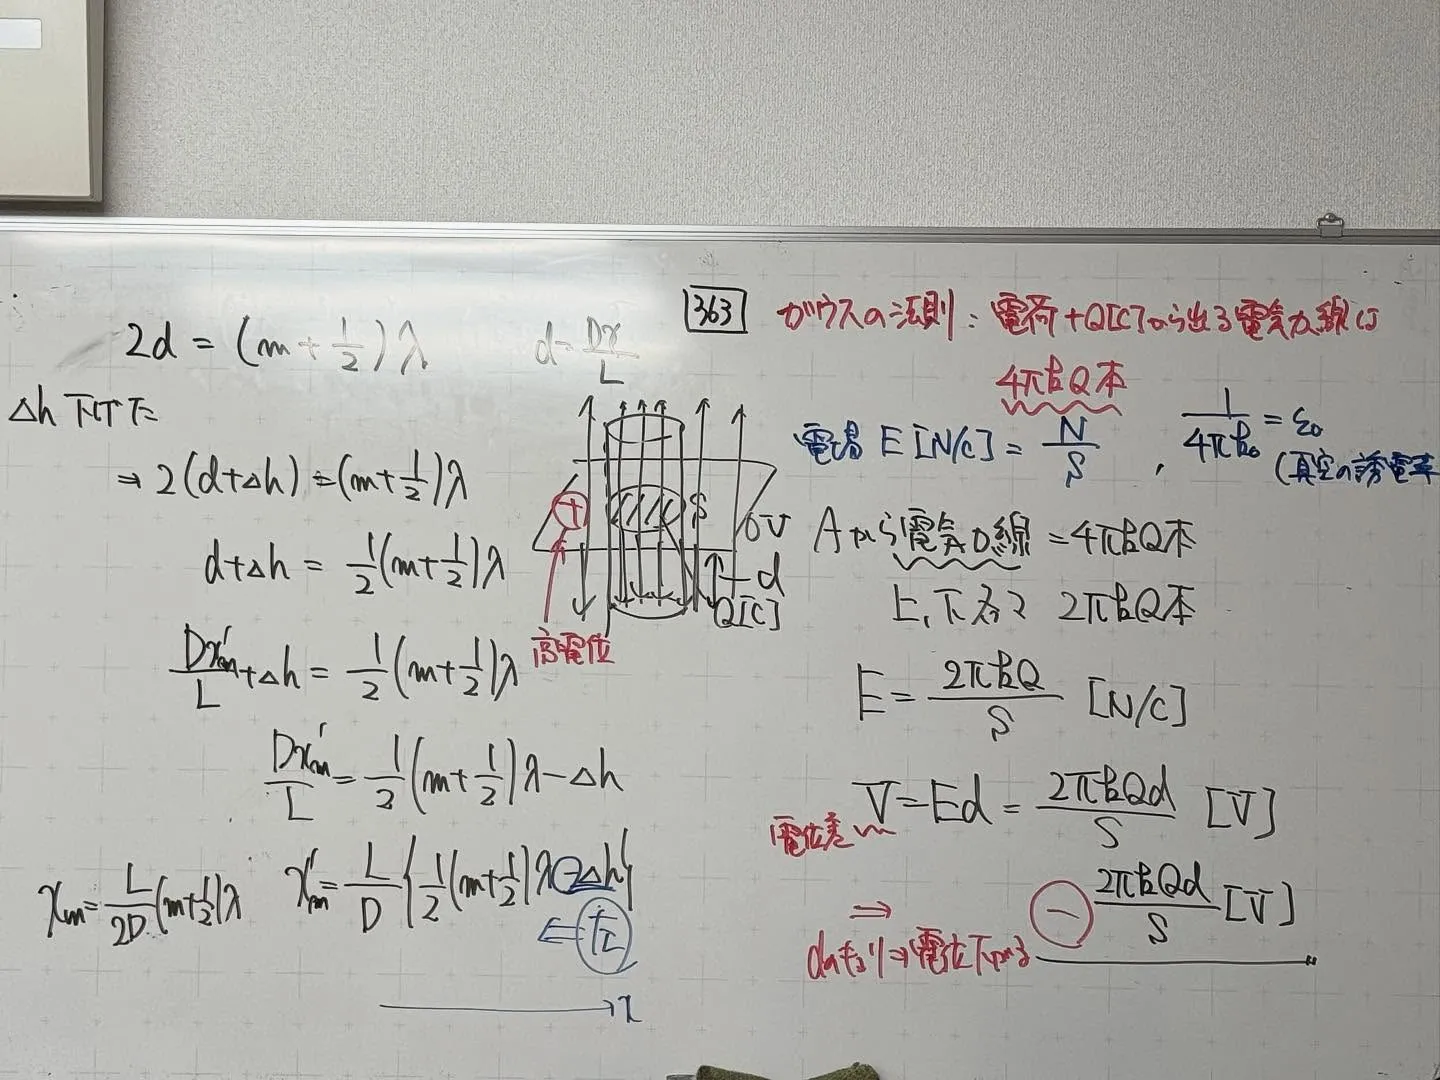 2d = (m + 1/2)λ
d = Dx/L
Δh 下げた
⇒ 2(d+Δh) = (m+1/2)λ
d+Δh = 1/2(m+1/2)λ
Dx'm/L + Δh = 1/2(m+1/2)λ
Dx'm/L = 1/2(m+1/2)λ - Δh
xm = L/2D(m+1/2)λ
x'm = L/D{1/2(m+1/2)λ - Δh}
⇐ 左
→ x
S
0V
+
d
Q[C]
高電位
363
ガウスの法則: 電荷+Q[C]から出る電気力線は
4πkQ本
電場 E[N/C] = N/S , 1/4πk₀ = ε₀
(真空の誘電率
Aから電気力線 = 4πkQ本
上,下各々 2πkQ本
E = 2πkQ/S [N/C]
V = Ed = 2πkQd/S [V]
電位差
⇒ - 2πkQd/S [V]
⇒電位下がる